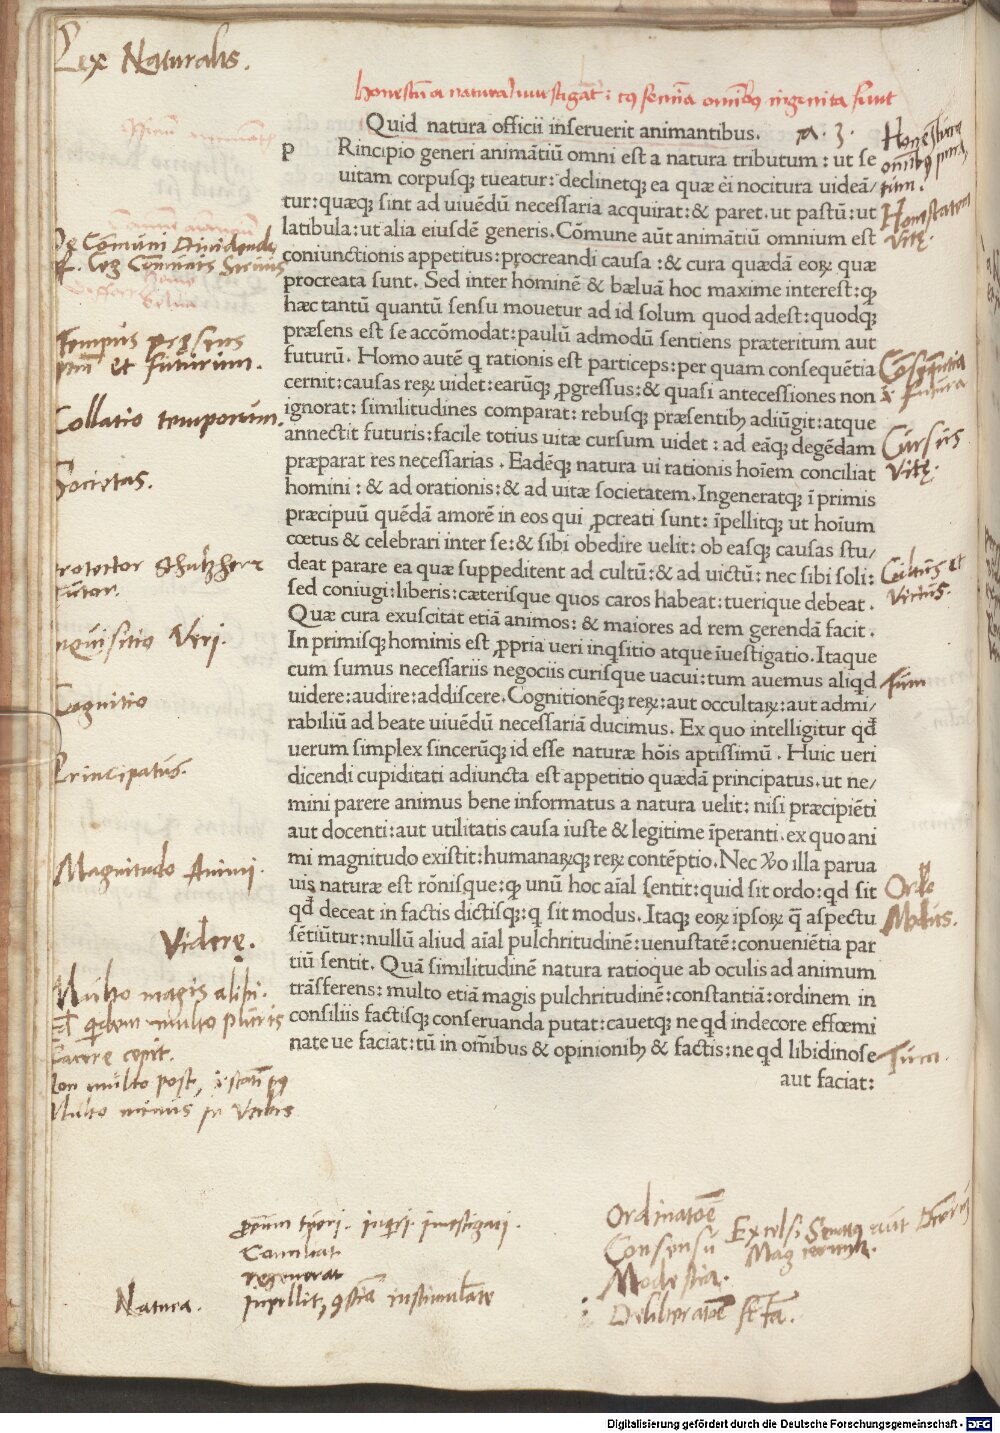 Lex Naturalis.
honestū a natura īuestigat̄ : cꝰ semīa omnibꝰ ingenita sunt
Quid natura officii inseruerit animantibus.
a. 3.
p Rincipio generi animātiū omni est a natura tributum : ut se
uitam corpusqꝫ tueatur: declinetqꝫ ea quæ ei nocitura uideā/
tur: quæqꝫ sint ad uiuēdū necessaria acquirat: & paret. ut pastū: ut
latibula: ut alia eiusdē generis. Cōmune aūt animātiū omnium est
coniunctionis appetitus: procreandi causa : & cura quædā eoꝝ quæ
procreata sunt. Sed inter hominē & bæluā hoc maxime interest: ꝙ
hæc tantū quantū sensu mouetur ad id solum quod adest: quodqꝫ
præsens est se accōmodat: paulū admodū sentiens præteritum aut
futurū. Homo autē q rationis est particeps: per quam consequētia
cernit: causas reꝝ uidet: earūqꝫ ꝓgressus: & quasi antecessiones non
ignorat: similitudines comparat: rebusqꝫ præsentibꝫ adiūgit: atque
annectit futuris: facile totius uitæ cursum uidet : ad eāqꝫ degēdam
præparat res necessarias . Eadēqꝫ natura ui rationis hoīem conciliat
homini : & ad orationis: & ad uitæ societatem. Ingeneratqꝫ ī primis
præcipuū quēdā amorē in eos qui ꝓcreati sunt: īpellitqꝫ ut hoīum
cœtus & celebrari inter se: & sibi obedire uelit: ob easqꝫ causas stu/
deat parare ea quæ suppeditent ad cultū: & ad uictū: nec sibi soli:
sed coniugi: liberis: cæterisque quos caros habeat: tuerique debeat .
Quæ cura exuscitat etiā animos: & maiores ad rem gerendā facit .
In primisqꝫ hominis est ꝓpria ueri inqsitio atque īuestigatio. Itaque
cum sumus necessariis negociis curisque uacui: tum auemus aliqd
uidere: audire: addiscere. Cognitionēqꝫ reꝝ: aut occultaꝝ: aut admi/
rabiliū ad beate uiuēdū necessariā ducimus. Ex quo intelligitur qđ
uerum simplex sincerūqꝫ id esse naturæ hōis aptissimū . Huic ueri
dicendi cupiditati adiuncta est appetitio quædā principatus. ut ne/
mini parere animus bene informatus a natura uelit: nisi præcipiēti
aut docenti: aut utilitatis causa iuste & legitime īperanti. ex quo ani
mi magnitudo existit: humanaꝝqꝫ reꝝ contēptio. Nec ꝟo illa parua
uis naturæ est rōnisque: ꝙ unū hoc aīal sentit: quid sit ordo: qd sit
qđ deceat in factis dictisqꝫ: q sit modus. Itaqꝫ eoꝝ ipsoꝝ q̄ aspectu
sētiūtur: nullū aliud aīal pulchritudinē: uenustatē: conueniētia par
tiū sentit. Quā similitudinē natura ratioque ab oculis ad animum
trāsferens: multo etiā magis pulchritudinē: constantiā: ordinem in
consiliis factisqꝫ conseruanda putat: cauetqꝫ ne qd indecore effœmi
nate ue faciat: tū in om̄ibus & opinionibꝫ & factis: ne qd libidinose
aut faciat:
Honestatem
Vitę.
Tempus pręsens
et futurum.
Collatio temporum.
Cursus
Vitę.
Societas.
Schutzherr
Cultus et
Victus.
Inquisitio Veri.
Tum
Cognitio
Principatus.
Magnitudo Animi.
Ordo
Modus.
Viderę.
Multo magis alibi.
multo pluris
Facere cepit.
Non multo post,
Multo minus in Verbis
Tum.
Conciliat
regenerat
Natura.
Ordinatoē
Consensū
Modestia.
Deliberatoē